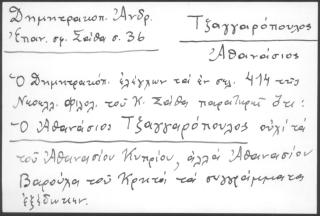 Δημητρακοπ. Ἀνδρ.
Ἐπαν. σφ. Σάθα σ. 36
Τζαγγαρόπουλος
Ἀθανάσιος
Ὁ Δημητρακόπ. ἐλέγχων τὰ ἐν σελ. 414 τῆς
Νεοελλ. Φιλολ. τοῦ Κ. Σάθα παρατηρεῖ ὅτι:
Ὁ Ἀθανάσιος Τζαγγαρόπουλος οὐχὶ τὰ
τοῦ Ἀθανασίου Κυπρίου, ἀλλὰ Ἀθανασίου
Βαρούχα τοῦ Κρητὸς τὰ συγγράμματα
ἐξέδωκεν.